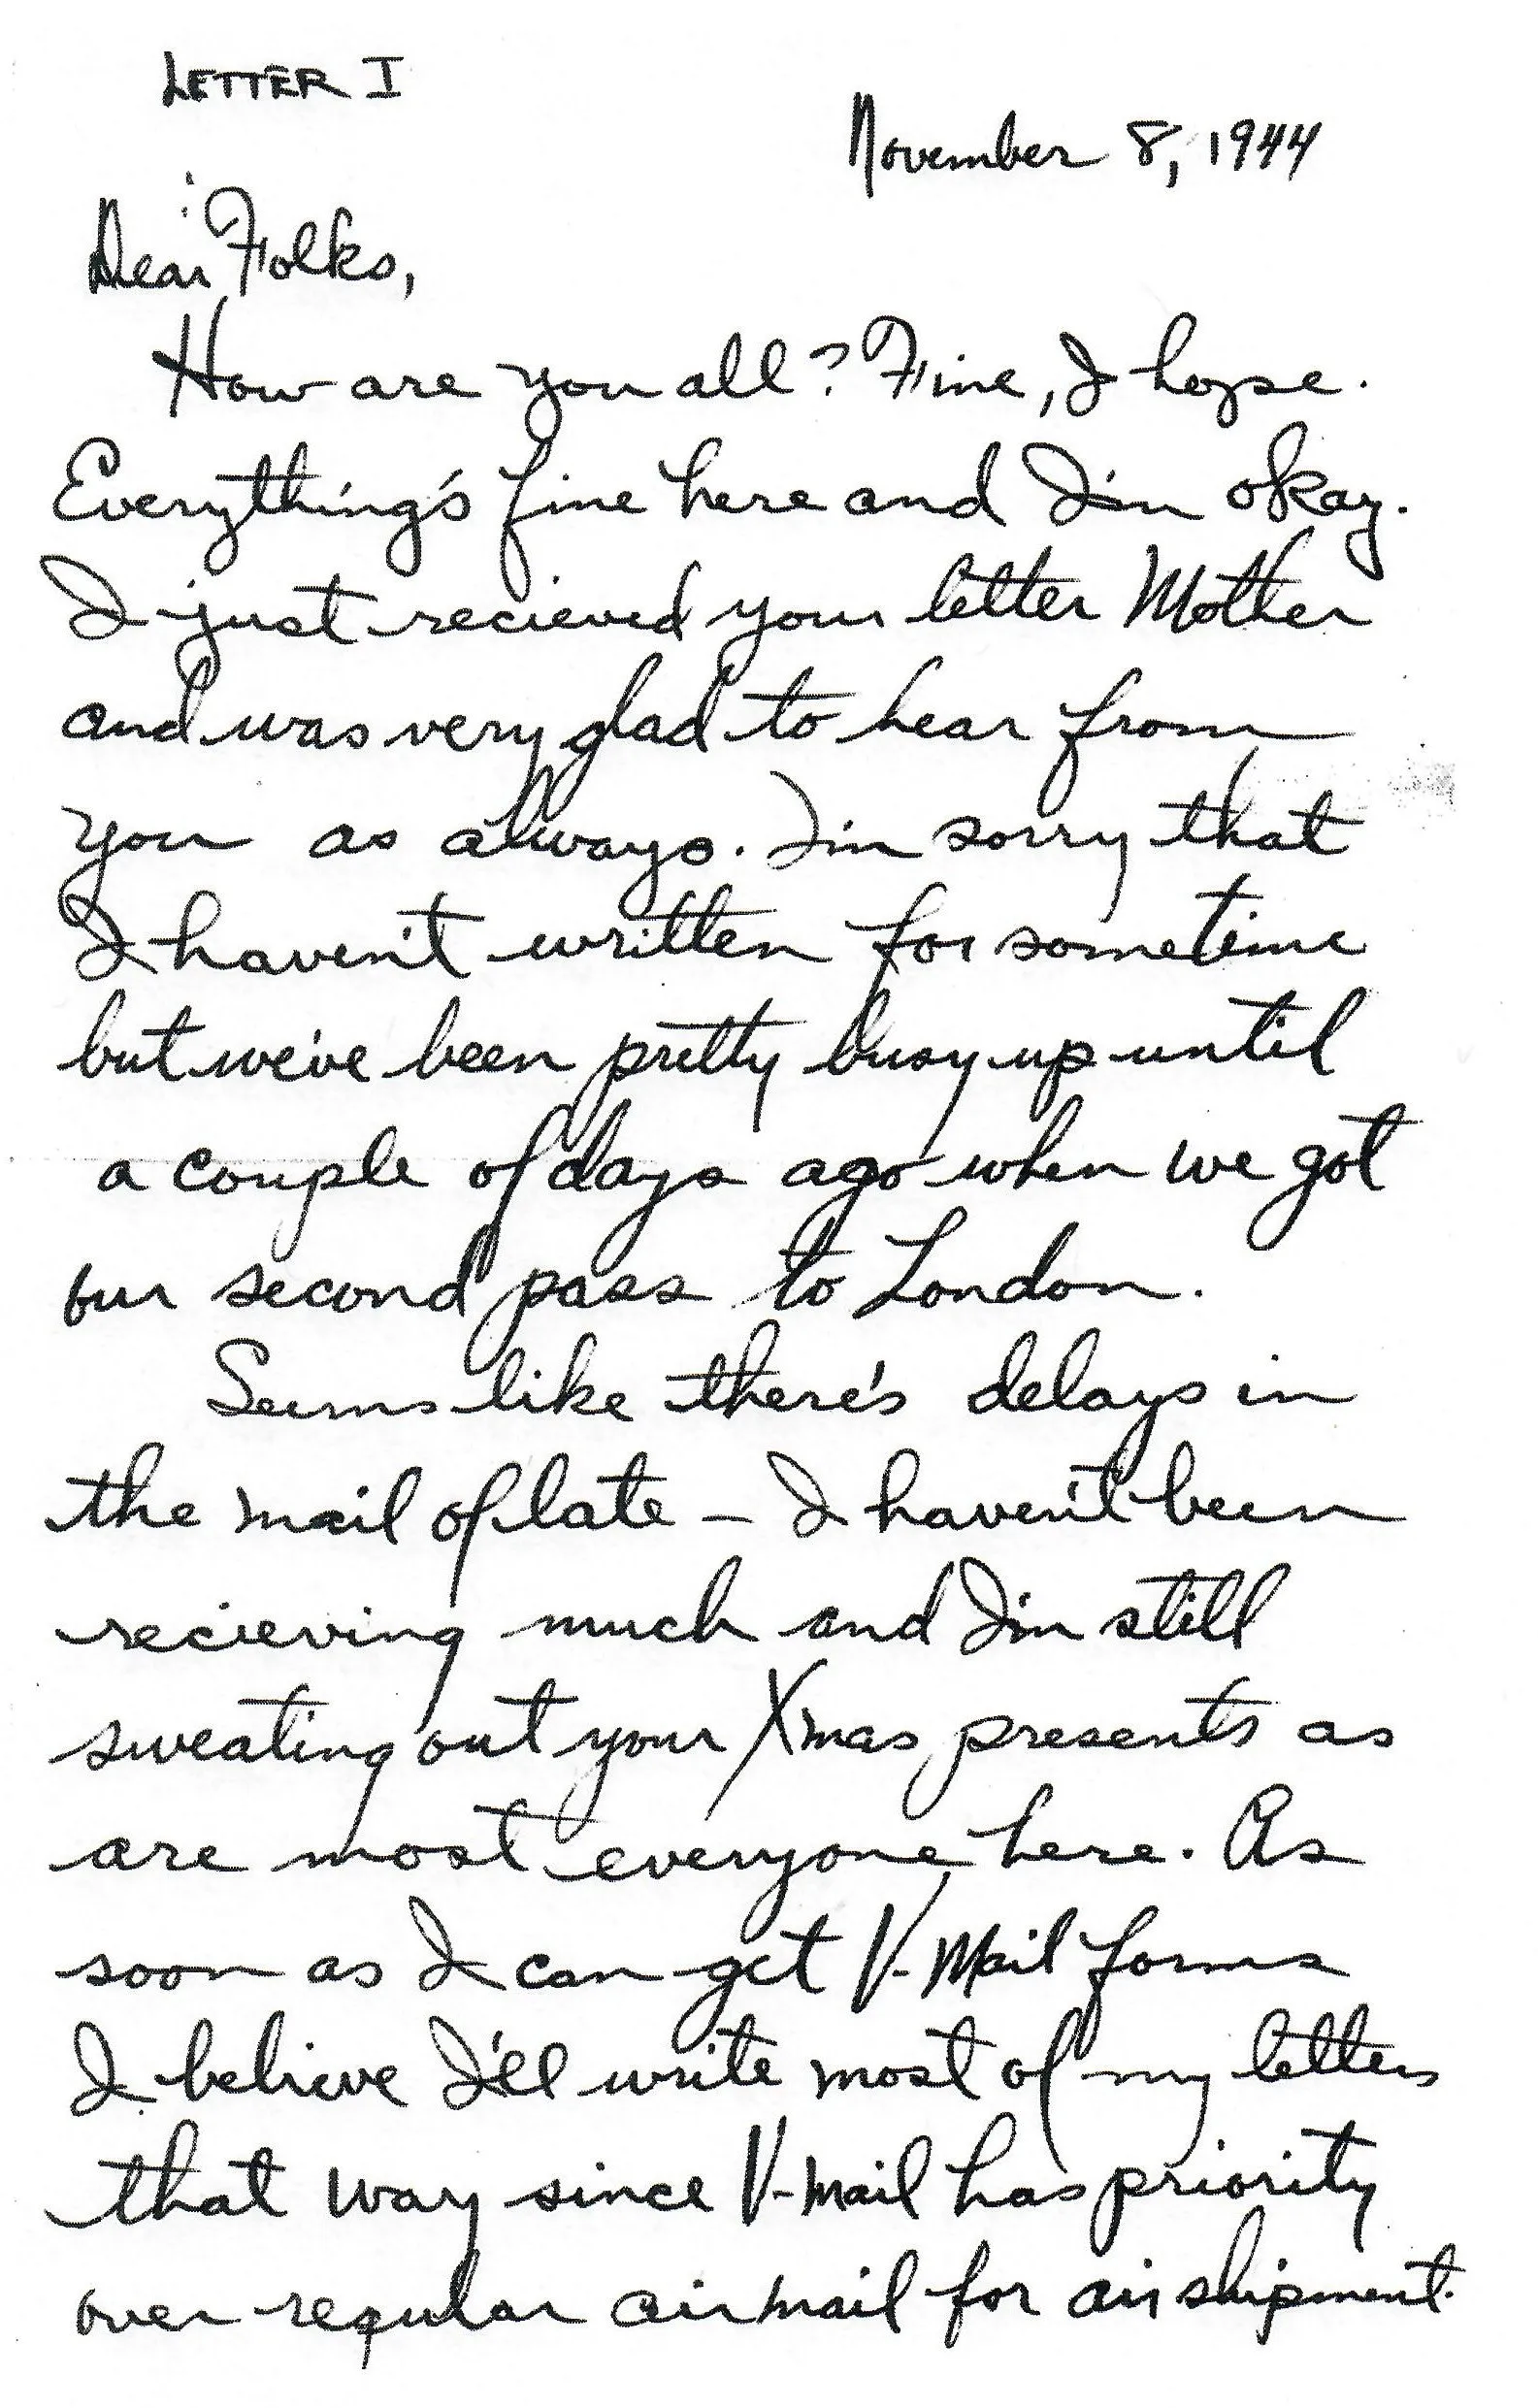 LETTER I
November 8, 1944
Dear Folks,
How are you all? Fine, I hope.
Everything's fine here and I'm okay.
I just recieved your letter Mother
and was very glad to hear from
you as always. I'm sorry that
I haven't written for sometime
but we've been pretty busy up until
a couple of days ago when we got
our second pass to London.
Seems like there's delays in
the mail of late - I haven't been
recieving much and I'm still
sweating out your Xmas presents as
are most everyone here. As
soon as I can get V-Mail forms
I believe I'll write most of my letters
that way since V-mail has priority
over regular airmail for air shipment.